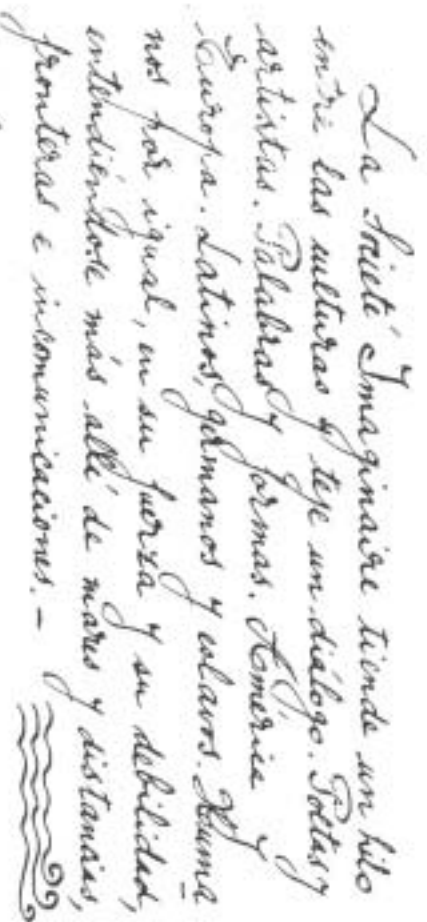 La Société Imaginaire tiende un hilo
entre las culturas y teje un diálogo. Poetas y
artistas. Palabras y formas. América y
Europa. Latinos, germanos y eslavos. Huma-
nos por igual, en su fuerza y su debilidad,
entendiéndose más allá de mares y distancias,
fronteras e incomunicaciones. -